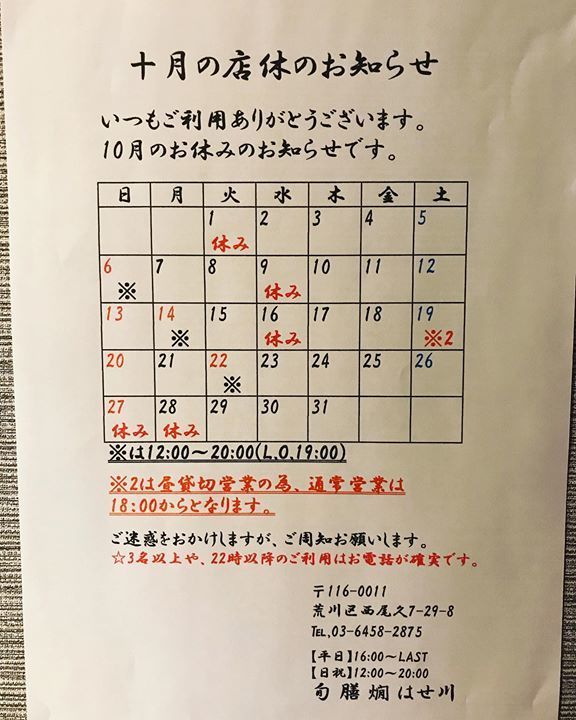 十月の店休のお知らせ
いつもご利用ありがとうございます。
10月のお休みのお知らせです。
日 月 火 水 木 金 土
1 2 3 4 5
休み
6 7 8 9 10 11 12
※ 休み
13 14 15 16 17 18 19
※ 休み ※2
20 21 22 23 24 25 26
※
27 28 29 30 31
休み 休み
※は12:00~20:00(L.O.19:00)
※2は昼貸切営業の為、通常営業は
18:00からとなります。
ご迷惑をおかけしますが、ご周知お願いします。
☆3名以上や、22時以降のご利用はお電話が確実です。
〒116-0011
荒川区西尾久7-29-8
TEL,03-6458-2875
【平日】16:00~LAST
【日祝】12:00~20:00
旬膳燗はせ川